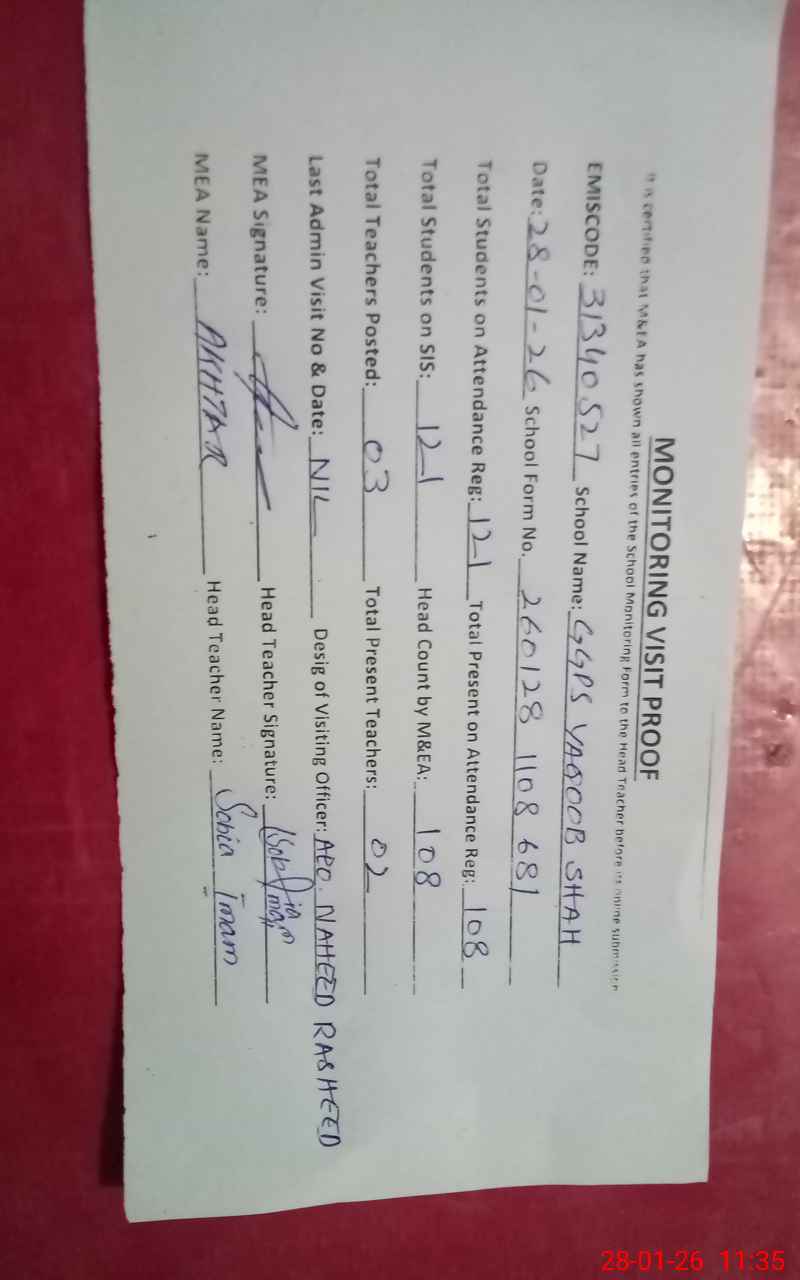 MONITORING VISIT PROOF
It is certified that M&EA has shown all entries of the School Monitoring Form to the Head Teacher before its online submission
EMISCODE: 31340527 School Name: GGPS YAQOOB SHAH
Date: 28-01-26 School Form No. 260128 1108 681
Total Students on Attendance Reg: 121 Total Present on Attendance Reg: 108
Total Students on SIS: 121 Head Count by M&EA: 108
Total Teachers Posted: 03 Total Present Teachers: 02
Last Admin Visit No & Date: NIL Desig of Visiting Officer: AEO. NAHEED RASHEED
MEA Signature: Head Teacher Signature: Sobia Imam
MEA Name: AKHTAR Head Teacher Name: Sobia Imam
28-01-26 11:35